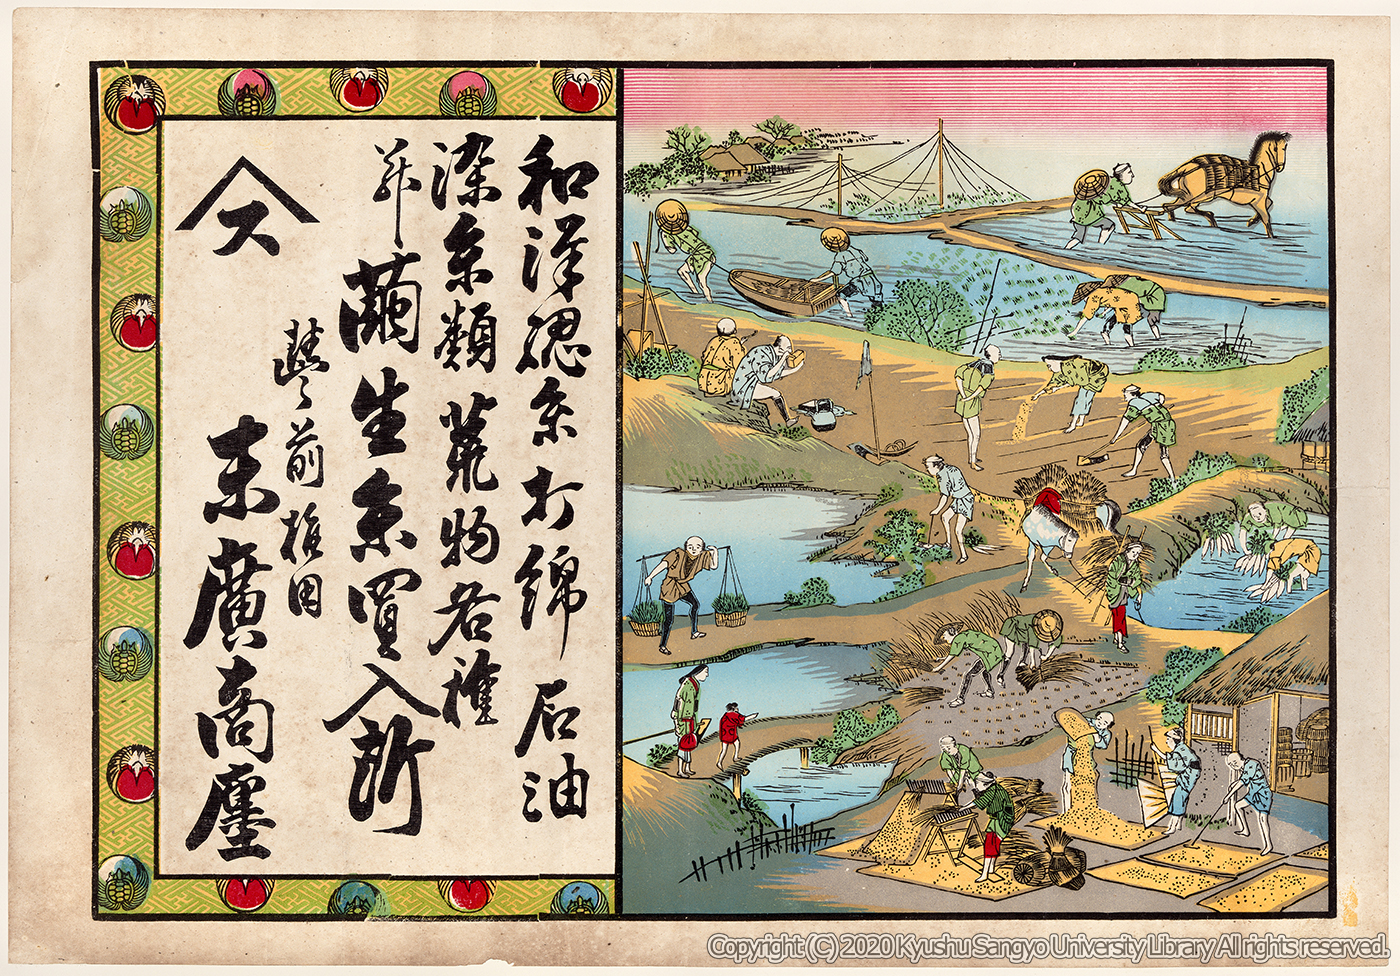 和洋綛糸打綿 石油
染糸類荒物各種
并繭生糸買入所
豊前椎田
ス
末廣商廛
Copyright (C) 2020 Kyushu Sangyo University Library All rights reserved.